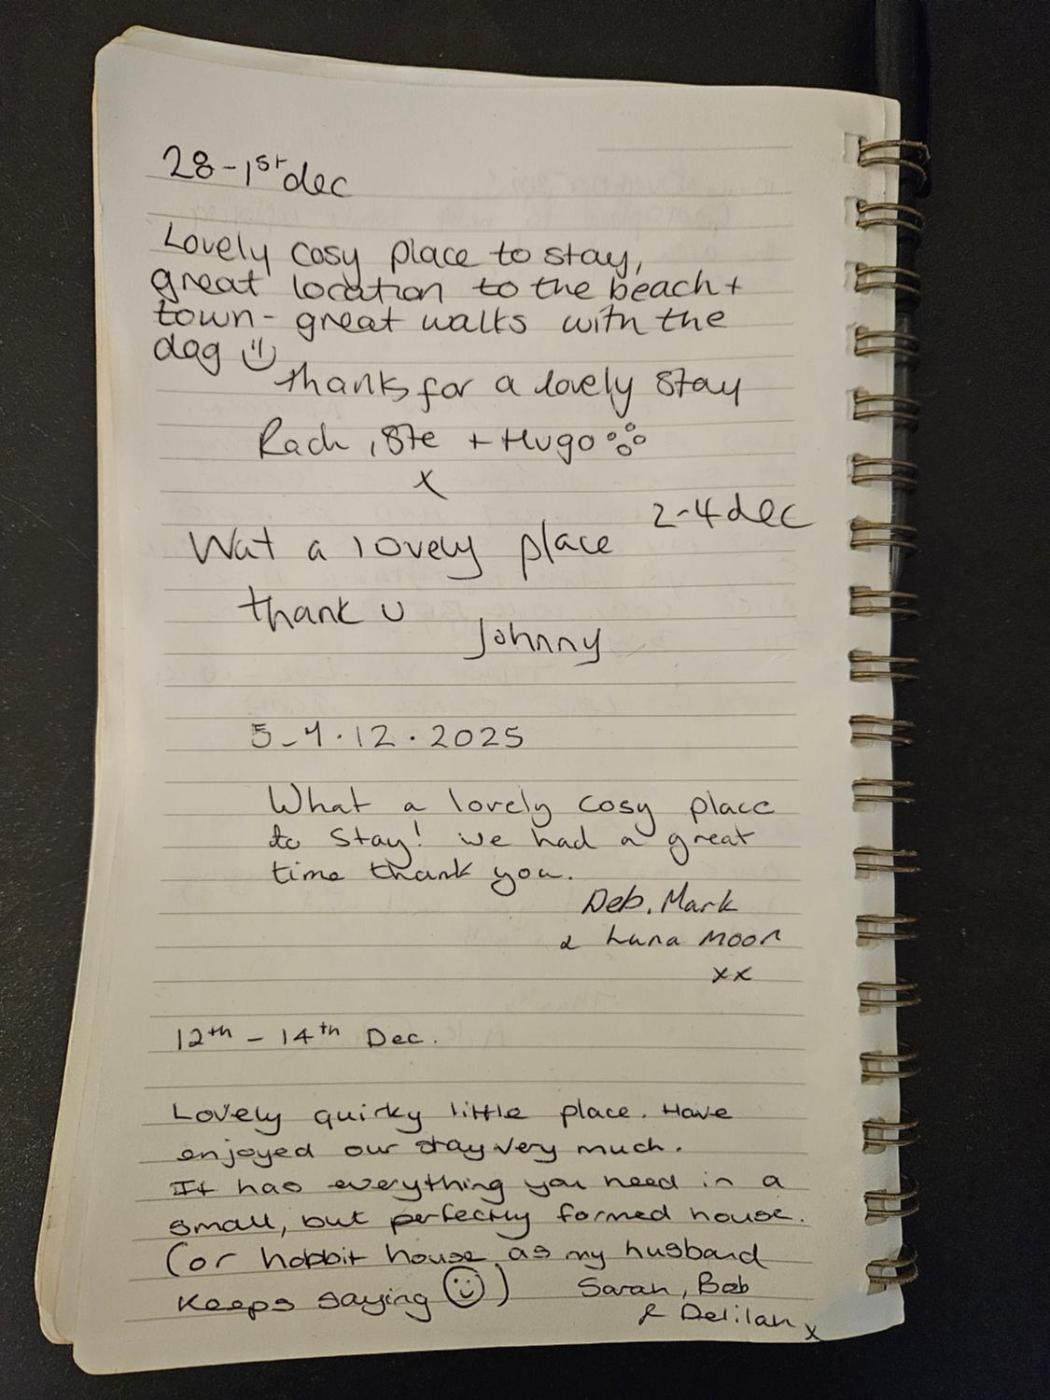 28-1st dec
Lovely cosy place to stay,
great location to the beach +
town - great walks with the
dog
thanks for a lovely stay
Rach, Ste + Hugo
x
2-4 dec
Wat a lovely place
thank u
Johnny
5-7.12.2025
What a lovely cosy place
to stay! We had a great
time thank you.
Deb, Mark
& Luna Moon
xx
12th - 14th Dec.
Lovely quirky little place. Have
enjoyed our stay very much.
It has everything you need in a
small, but perfectly formed house.
(or hobbit house as my husband
keeps saying ☺)
Sarah, Bob
& Delilah x